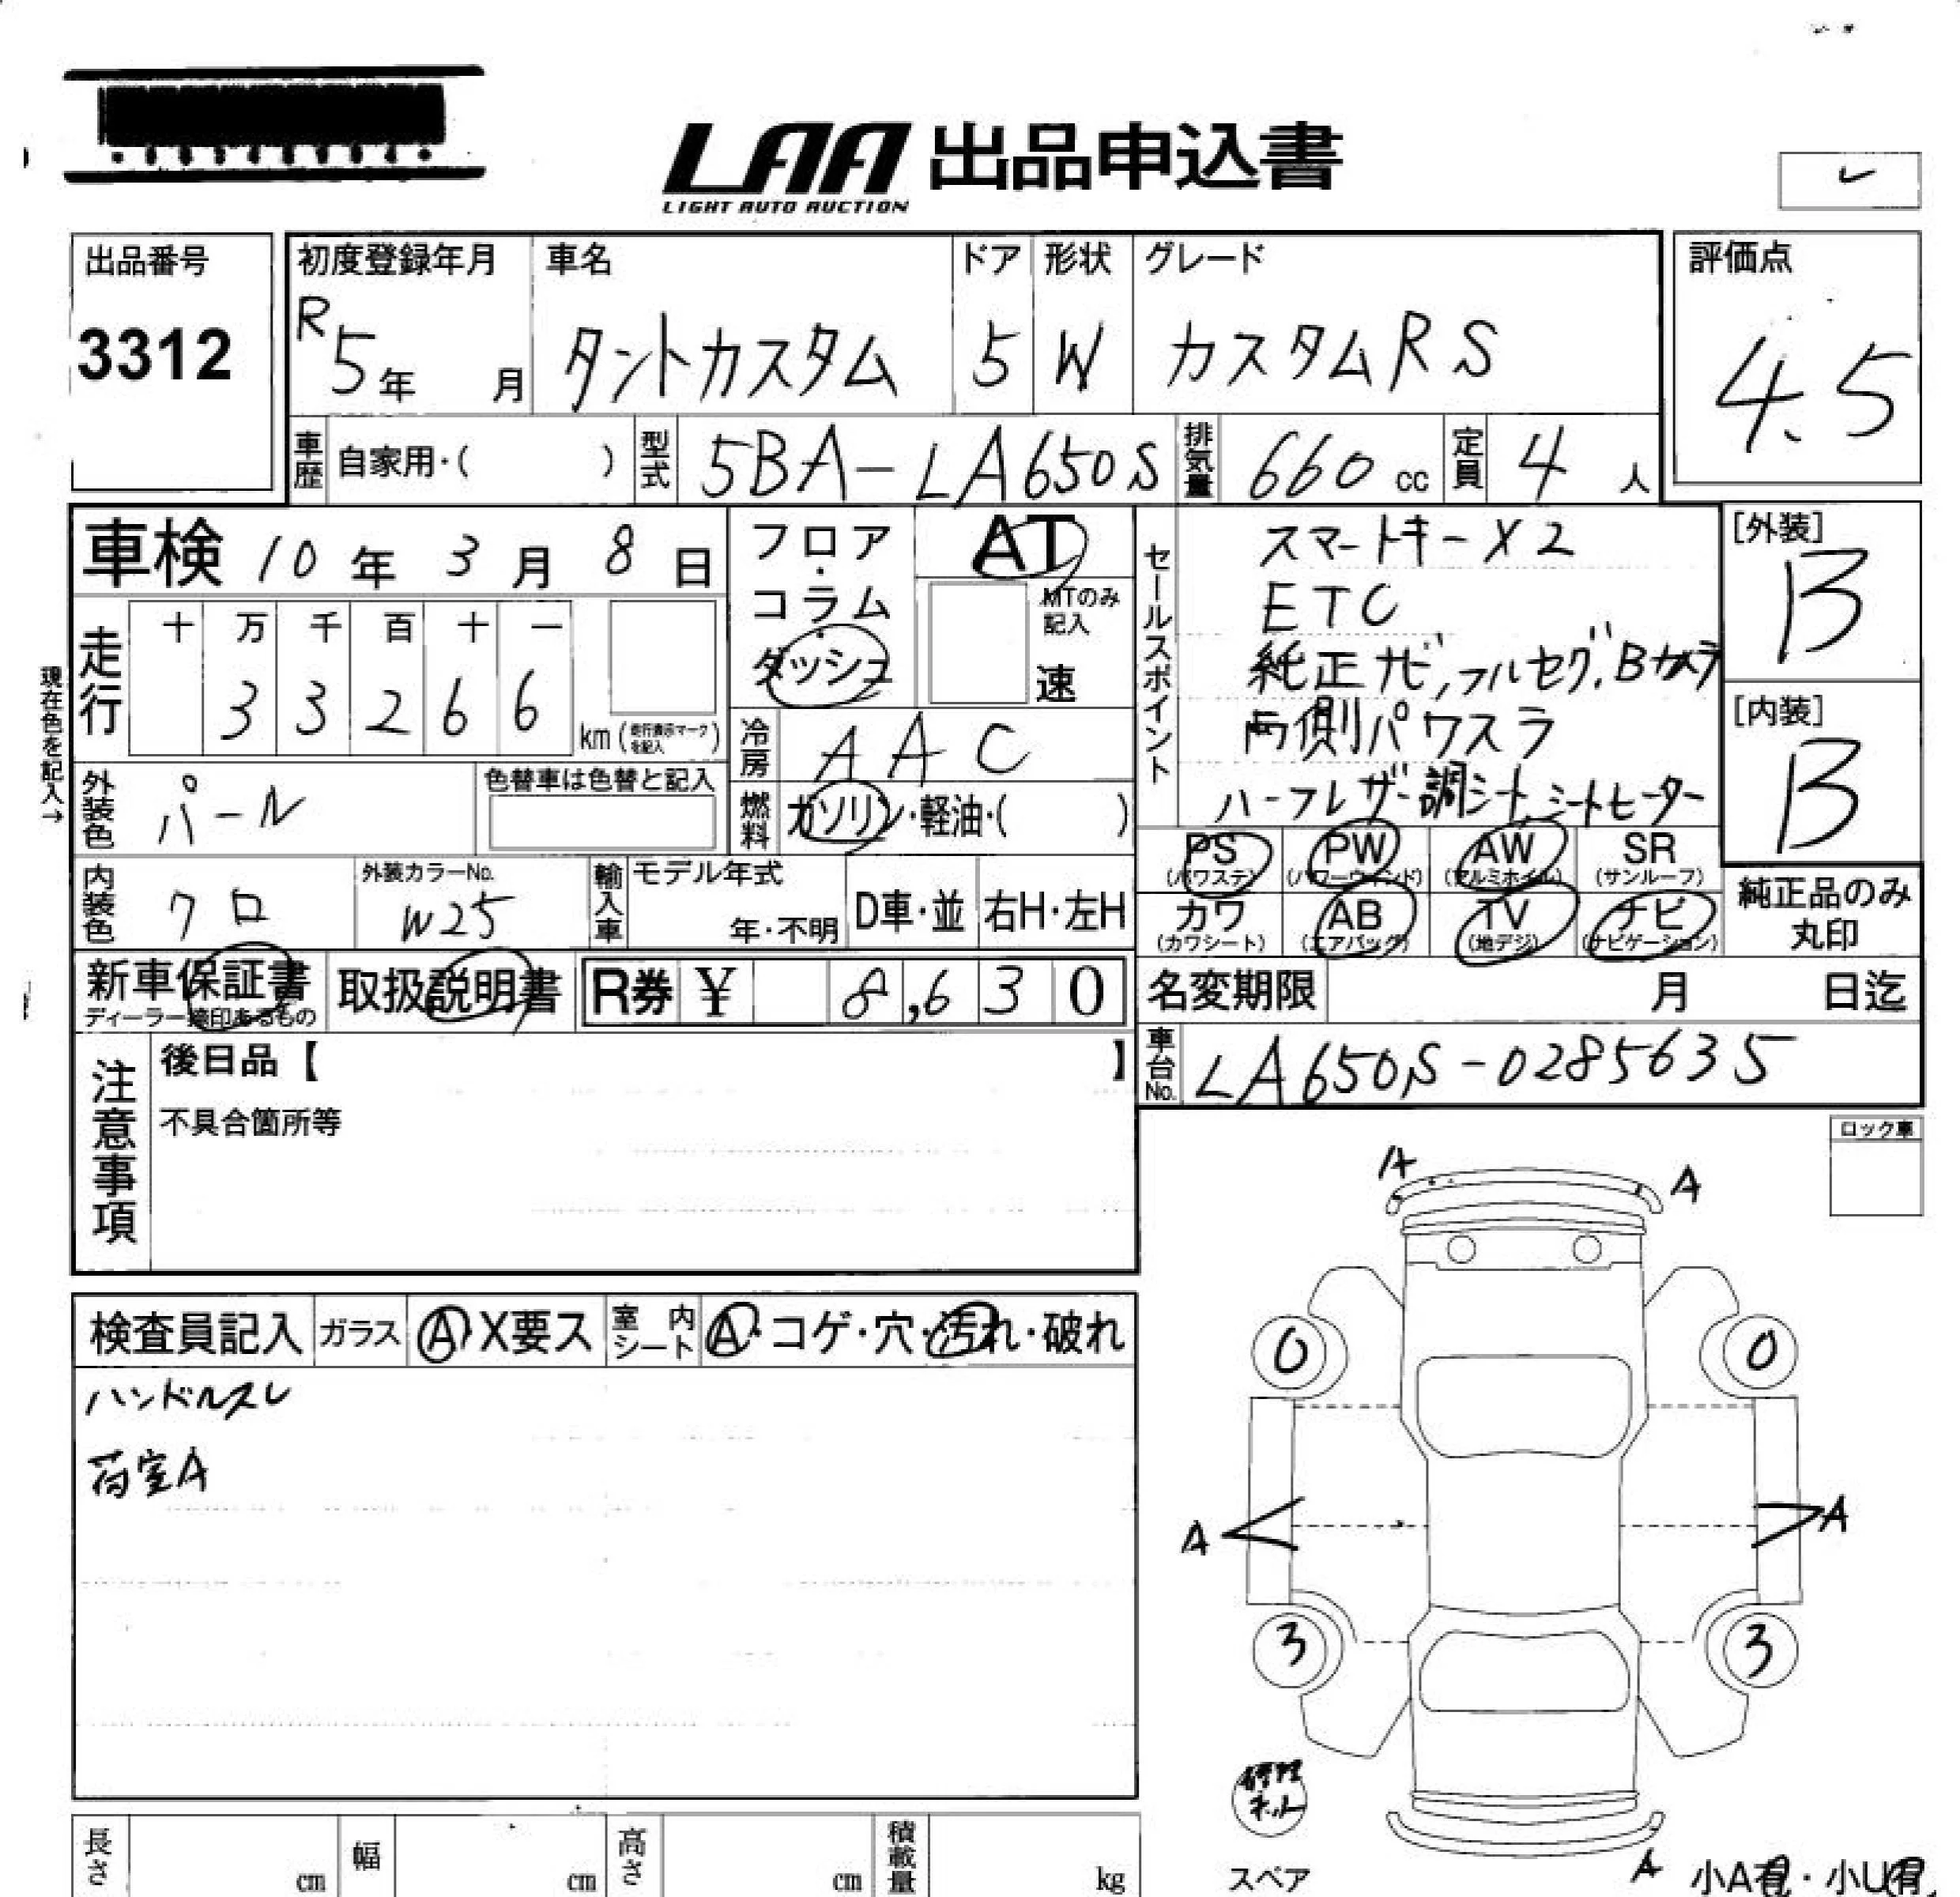 LAA 出品申込書
LIGHT AUTO AUCTION
出品番号
3312
初度登録年月
R5年 月
車名
タントカスタム
ドア
5
形状
W
グレード
カスタムRS
評価点
4.5
車歴 自家用・( )
型式 5BA-LA650S
排気量 660 cc
定員 4 人
車検 10年 3月 8日
フロア・コラム・ダッシュ
AT
MTのみ記入
速
セールスポイント
スマートキーX2
ETC
純正ナビ,フルセグ,Bカメラ
両側パワスラ
ハーフレザー調シート,シートヒーター
[外装]
B
[内装]
B
現在色を記入→
走行 十 万 千 百 十 一
3 3 2 6 6 km (走行表示マークを記入)
冷房 AAC
外装色 パール
色替車は色替と記入
燃料 ガソリン・軽油・( )
内装色 クロ
外装カラーNo.
W25
輸入車 モデル年式
年・不明
D車・並 右H・左H
PS (パワステ)
PW (パワーウィンド)
AW (アルミホイル)
SR (サンルーフ)
カワ (カワシート)
AB (エアバッグ)
TV (地デジ)
ナビ (ナビゲーション)
純正品のみ
丸印
新車保証書
ディーラー捺印あるもの
取扱説明書
R券 ¥ 8,630
名変期限 月 日迄
車台No. LA650S-0285635
注意事項
後日品【 】
不具合箇所等
ロック車
検査員記入 ガラス A・X要ス 室内シート A・コゲ・穴・汚れ・破れ
ハンドルスレ
荷室A
A A
0 0
A A
3 3
修理キット
スペア
A
小A有・小U有
長さ cm 幅 cm 高さ cm 積載量 kg